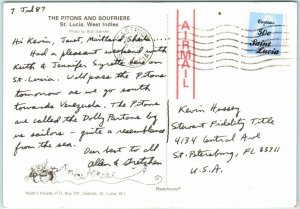 7 Jul 87
THE PITONS AND SOUFRIERE
St. Lucia, West Indies
Hi Kevin, Janet, Maitland, Sheila...
Had a pleasant weekend with
Keith & Jennifer Syrette here on
St. Lucia. Will pass the Pitons
tomorrow as we go south
towards Venezuela. The Pitons
are called the Dolly Partons by
us sailors - quite a resemblance
from the sea.
Our best to all
Allan & Gretchen
AIRMAIL
50c
Saint
Lucia
Kevin Hussey
Stewart Fidelity Title
4134 Central Ave
St. Petersburg, FL 33711
U.S.A.